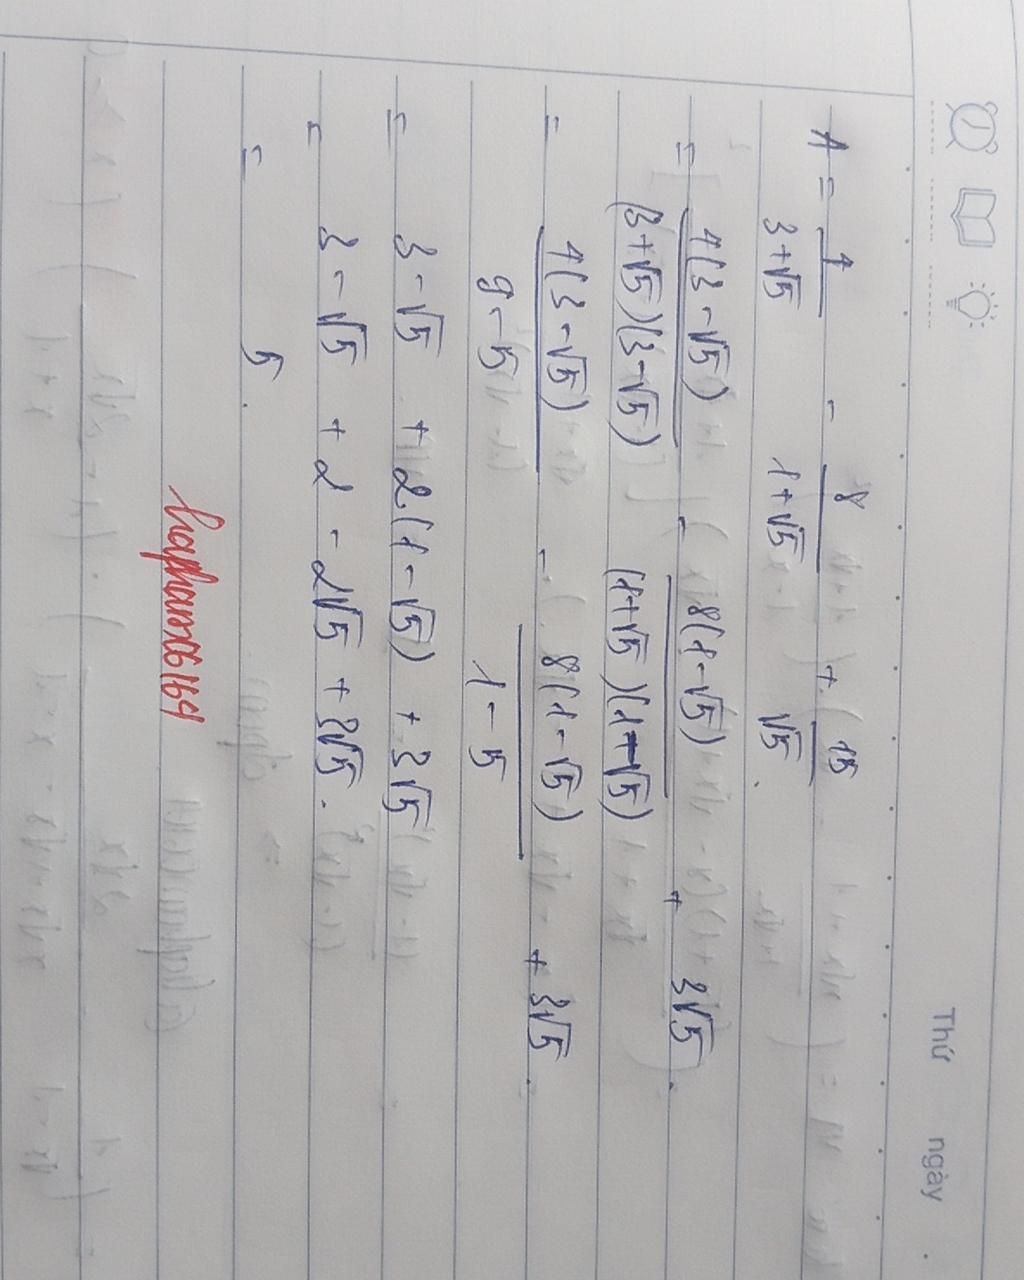 Thứ ngày
A = 4/(3+√5) - 8/(1+√5) + 15/√5.
= 4(3-√5)/((3+√5)(3-√5)) - 8(1-√5)/((1+√5)(1-√5)) + 3√5.
= 4(3-√5)/(9-5) - 8(1-√5)/(1-5) + 3√5.
= 3-√5 + 2(1-√5) + 3√5
= 3-√5 + 2 - 2√5 + 3√5.
= 5.
hapham06164